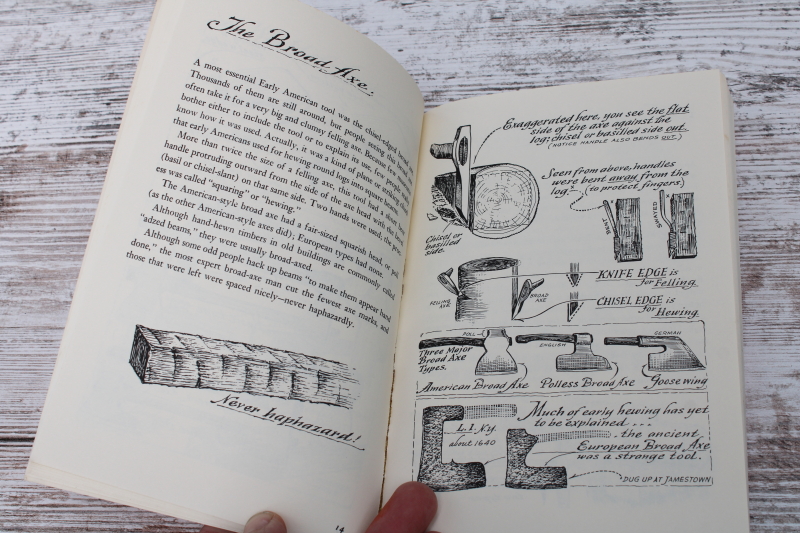 The Broad Axe.
A most essential Early American tool was the chisel-edged broad axe.
Thousands of them are still around, but people seeing this
often take it for a very big and clumsy felling axe. Because few
bother either to include the tool or to explain its use, few people
know how it was used. Actually, it was a kind of plane or striking chisel
that early Americans used for hewing round logs into square beams.
More than twice the size of a felling axe, this tool had a short
handle protruding outward from the side of the axe head with the
(basil or chisel-slant) on that same side. Two hands were used, the
ess was called "squaring" or "hewing."
The American-style broad axe had a fair-sized squarish head, or poll
(as the other American-style axes did); European types had none.
Although hand-hewn timbers in old buildings are commonly called
"adzed beams," they were usually broad-axed.
Although some odd people hack up beams "to make them appear hand
done," the most expert broad-axe man cut the fewest axe marks, and
those that were left were spaced nicely—never haphazardly.
Never haphazard!
14
Exaggerated here, you see the flat
side of the axe against the
log: chisel or basilled side out.
(NOTICE HANDLE ALSO BENDS OUT.)
Chisel or
basilled
side.
Seen from above, handles
were bent away from the
log. (to protect fingers)
SWAYED
FELLING
AXE
BROAD
AXE
KNIFE EDGE is
for Felling.
CHISEL EDGE is
for Hewing.
Three Major
Broad Axe
Types.
POLL
ENGLISH
GERMAN
American Broad Axe
Polless Broad Axe
Goosewing
L.I. N.Y.
about 1640
Much of early hewing has yet
to be explained...
.. the ancient
European Broad Axe
was a strange tool.
DUG UP AT JAMESTOWN